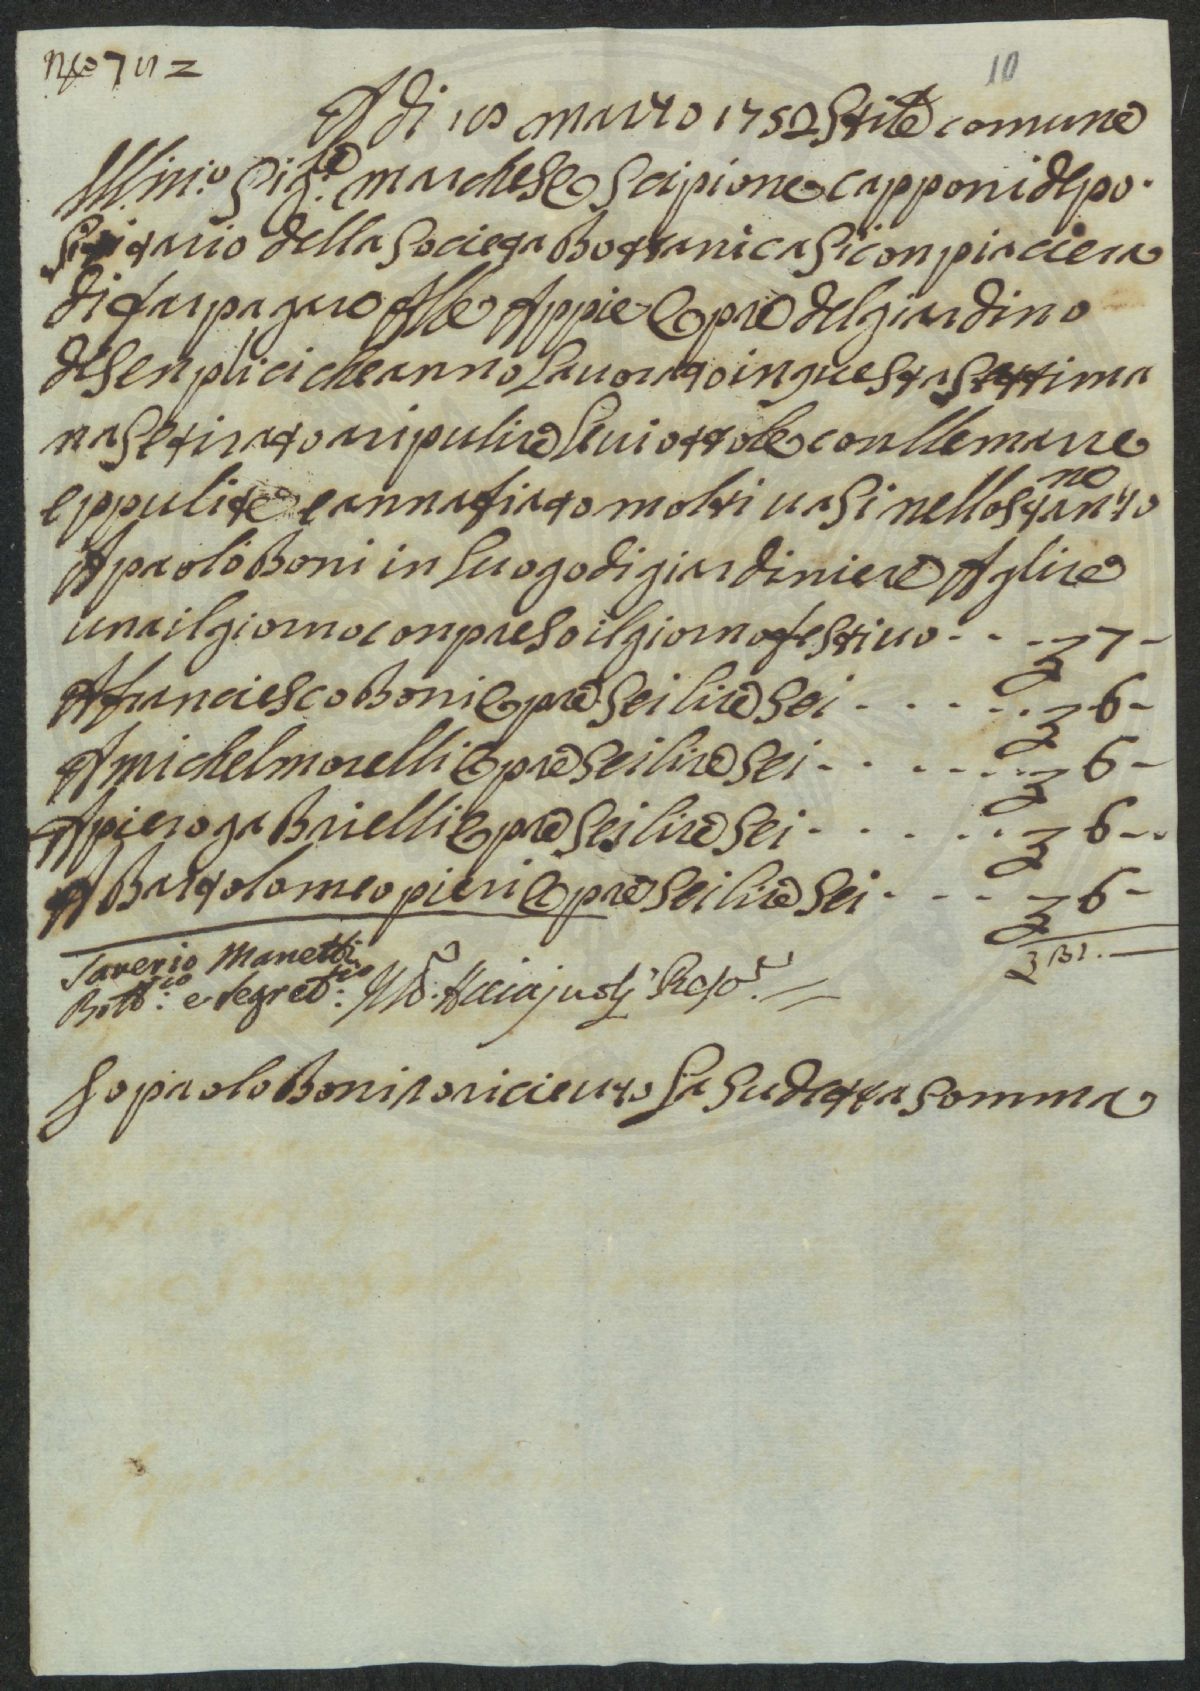 10
A di 10 marzo 1752 Stile comune
Illmo Sigre marchese Scipione capponi depo
Sitario della Societa Bottanica Si conpiaciera
di far pagare Alle Appie Opre del giardino
de Senplici che anno Lauorato in questa Settima
na Se tirato a ripulire Li uiottole con lle marre
e ppulite e annafiato molti uasi nello stanzone
A paolo Boni in Luogo di giardiniere A lire
una il giorno conpreso il giorno festiuo - - - 7 -
A franciesco Boni Opre Sei lire Sei - - - 6 -
A michel morelli Opre Sei lire Sei - - - 6 -
A piero gabrielli Opre Sei lire Sei - - - 6 -
A Bartolomeo pieri Opre Sei lire Sei - - - 6 -
31.-
Saverio Manetti
Bottco: e Segretrio:
Io paolo Boni o riceuto La Sudetta Somma